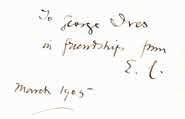 To George Ives
in friendship from
E. C.
March 1905